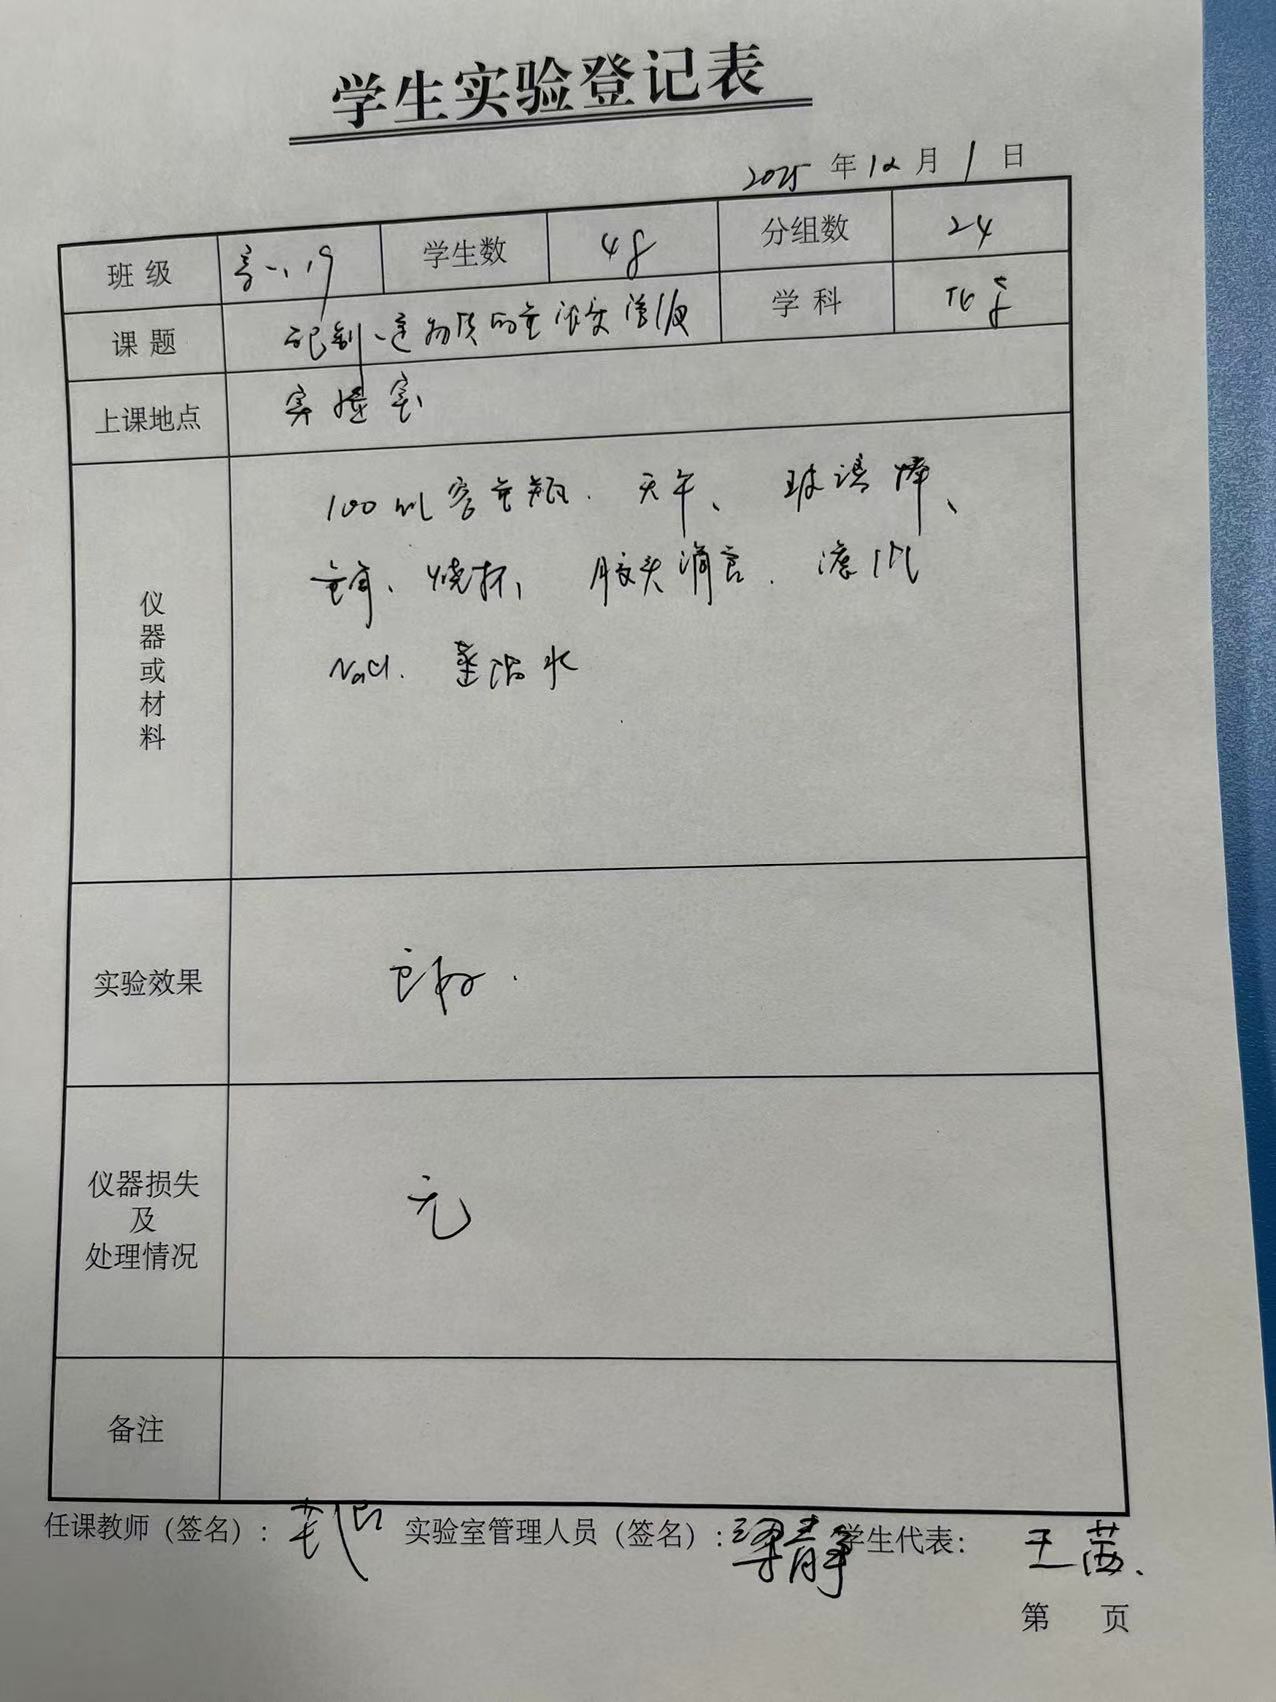 学生实验登记表
2025 年 12 月 1 日
班 级 高一、19 学生数 48 分组数 24
课 题 配制一定物质的量浓度溶液 学 科 化学
上课地点 实验室
仪器或材料
100ml容量瓶. 天平、玻璃棒、
量筒、烧杯, 胶头滴管.
NaCl. 蒸馏水
实验效果 良好.
仪器损失
及
处理情况
无
备注
任课教师（签名）: 实验室管理人员（签名）: 梁静 学生代表: 王茜.
第 页